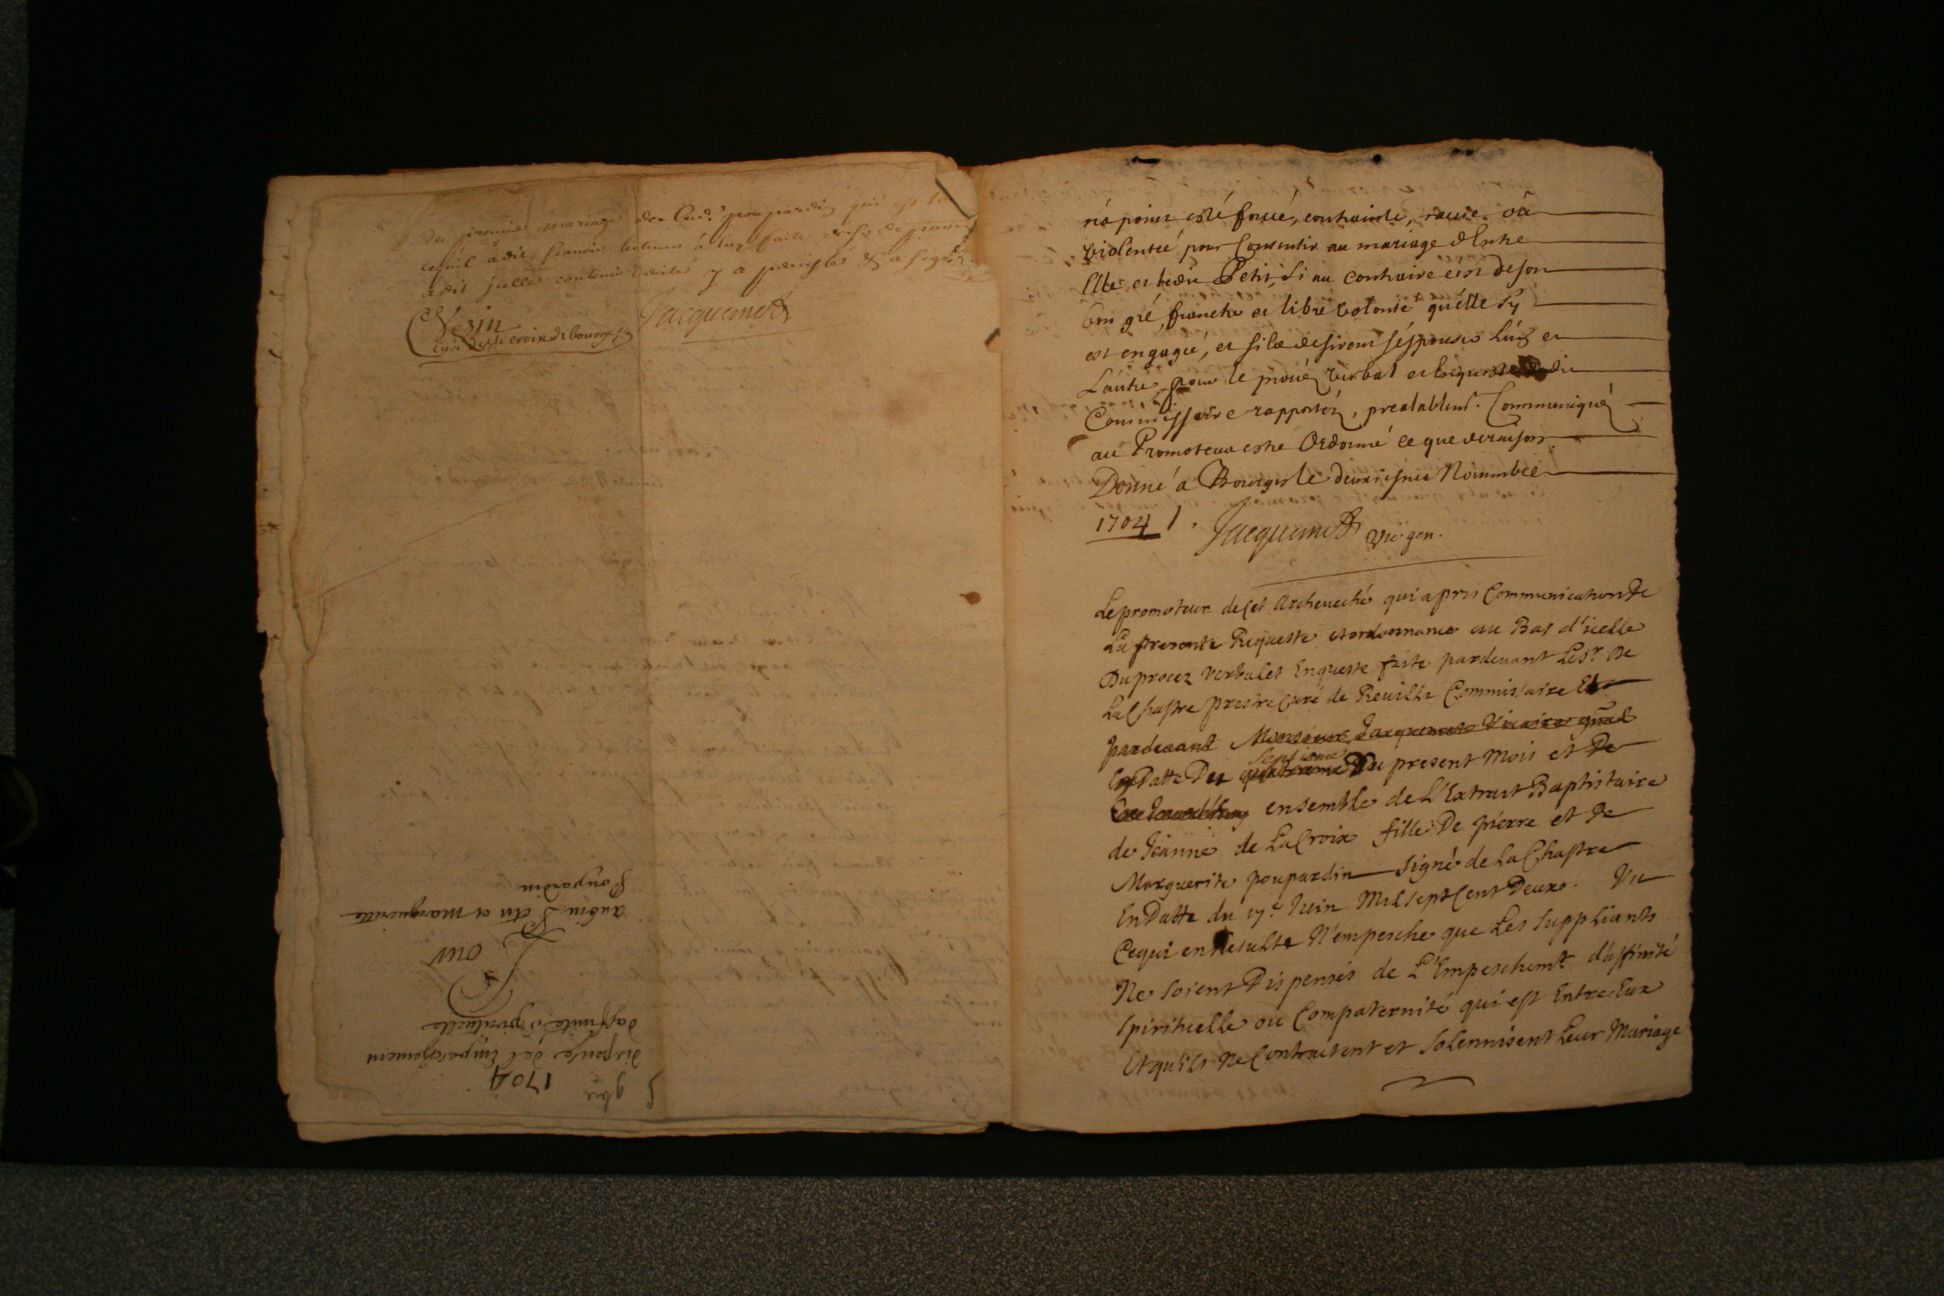 du premier mariage de lad. poupardin qui est tout
cequil a dit scavoir lecture à luy faite
a dit icelle contenir verité y a persisté & a signé
Vezin
curé de ste croix de bourges
Jacquemet
9bre 1704
dispense de l'Empeschement
daffinité Spirituelle
Pour
aubin Petit et marguerite
Poupardin
n'a point esté forcée, contrainte, ravie ou
violentée, pour Consentir au mariage d'Entre
Elle et ledit Petit, si au contraire c'est de son
bon gré, franche et libre volonté quelle sy
est engagée, et silz desirent sépouser lún et
L'autre, pour le procez verbal et Enqueste dudit
Commissaire rapportéz, prealablemt. Communiquéz
au Promoteur estre Ordonné ce que de raison.
Donné a Bourges le deuxiesme Nouembre
1704 Jacquemet Vic. gen.
Le promoteur de Cet Archeuesché qui a pris Communication de
La presente Requeste et ordonnance au Bas d'icelle
Du procez Verbal et Enqueste faite pardeuant Le Sr. De
La Chastre prestre Curé de Reuilly Commissaire Et
pardeuant Monsieur Jacquemet Vicaire gnal
En Datte Du septieme Du present Mois et De
ensemble de L'Extrait Baptistaire
de Jeanne de La Croix fille De pierre et De
Marguerite poupardin signé de La Chastre
En Datte du 17e. Juin Mil sept Cent Deux. Vu
Ce qui en Resulte N'empesche que Les suppliants
Ne soient Dispensés de L'Empeschemt d'affinité
spirituelle ou Compaternité qui est Entre Eux
Et qu'ils Ne Contractent et solennisent Leur Mariage